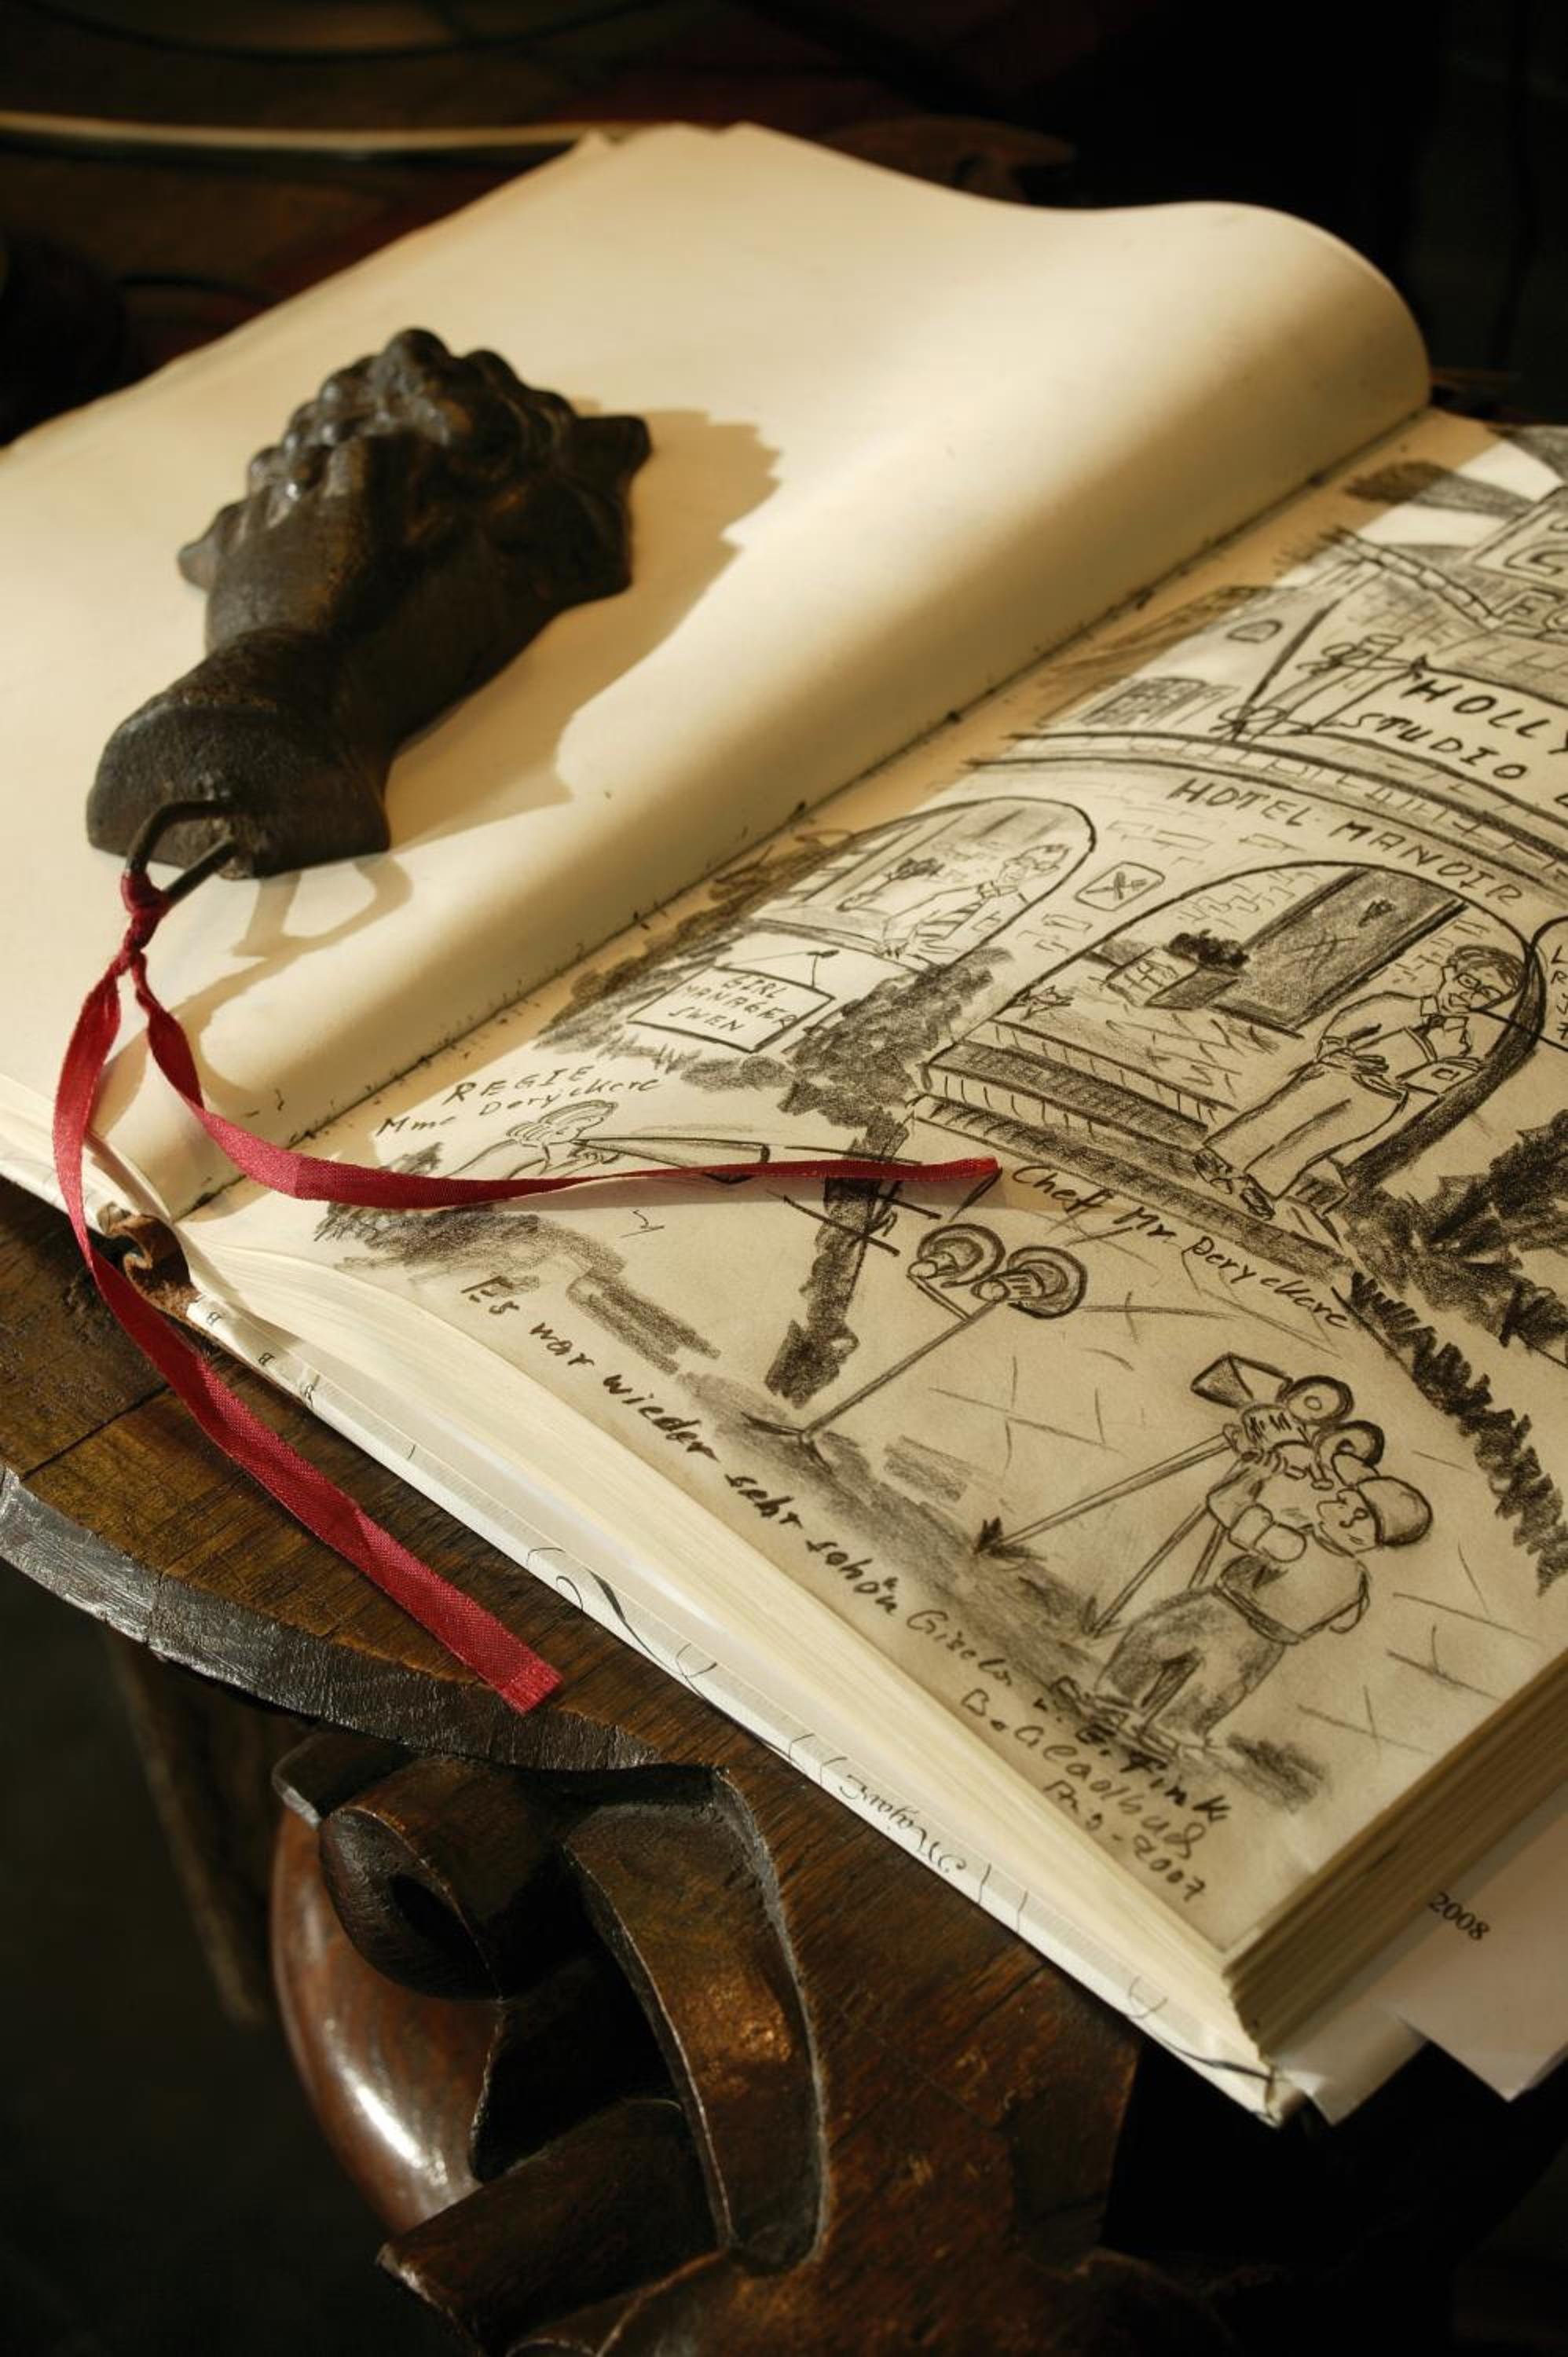 HOLLY
STUDIO
HOTEL MANOIR
GIRL
MANAGER
SWEN
REGIE
Mme Deryckere
Chef Mr. Deryckere
Es war wieder sehr schön Gisela u. E. Fink
2007
2008